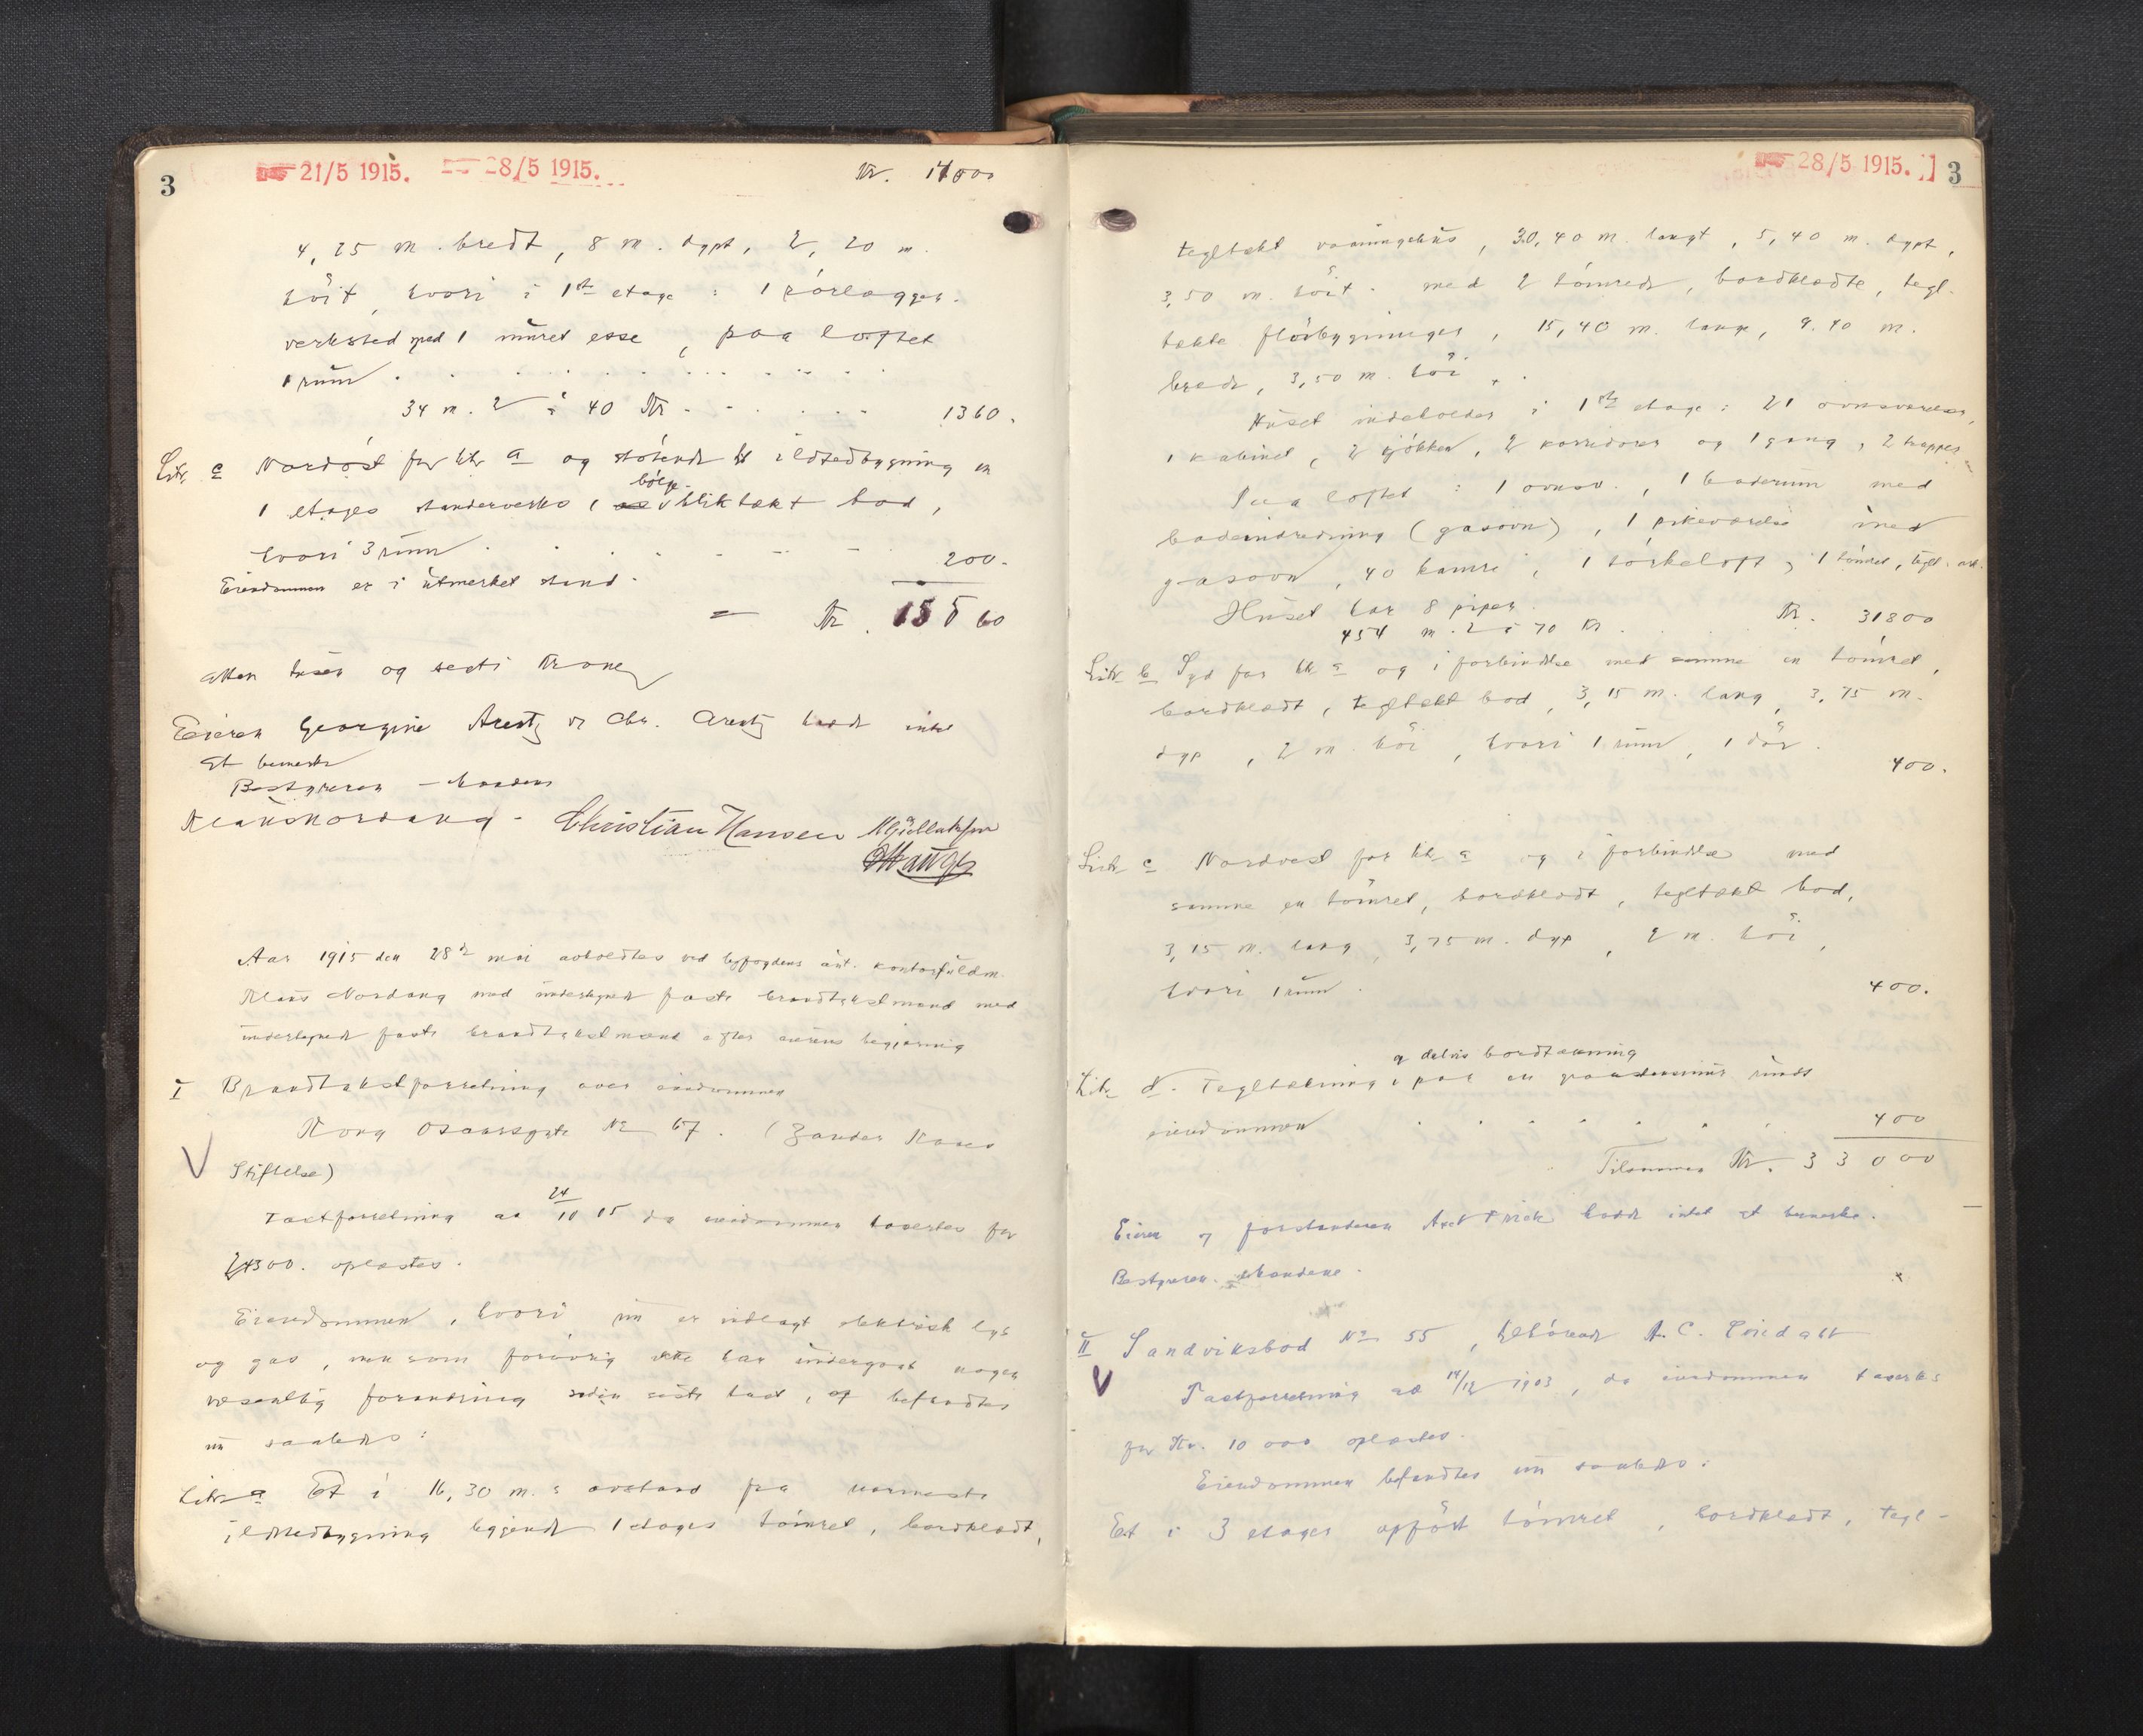 3
21/5 1915. 28/5 1915.
Kr. 17000
4,25 m. bredt, 8 m. dypt, 2,20 m.
höit, hvori i 1ste etage: 1 rörlægger-
verksted med 1 muret esse, paa loftet
1 rum
34 m. 2 à 40 Kr. 1360.
Litr. c Nordöst for litr. a og stötende til ildstedbygning en
1 etages standerverks, bölge-
bliktækt bod,
hvori 3 rum 200.
Eiendommen er i utmerket stand.
= Kr. 18560
atten tusen og seksti Kroner
Eieren Georgine Arentz v Chr. Arentz hadde intet
at bemerke
Bestyreren – Mandens
Klaus Nordang – Christian Hansen
Hauge
Aar 1915 den 28de mai avholdtes ved byfogdens aut. kontorfuldm.
Klaus Nordang med undertegnede faste brandtakstmænd med
undertegnede faste brandtakstmænd efter eierens begjæring
I Brandtakstforretning over eiendommen
Kong Oscarsgate No 67. (Zander Kaaes
Stiftelse)
Takstforretning av 24/10 15 da eiendommen taxertes for
24300. oplæstes.
Eiendommen, hvori nu er indlagt elektrisk lys
og gas, men som forøvrig ikke har undergaat nogen
væsentlig forandring siden siste takst, befandtes
nu saaledes:
Litr. a Et i 16,30 m.s avstand fra nærmeste
ildstedbygning liggende 1 etages tömret, bordklædt,
28/5 1915. 3
tegltækt vaaningshus, 30,40 m. langt, 5,40 m. dypt,
3,50 m. höit med 2 tömrede, bordklædte, tegl-
tækte flöibygninger, 15,40 m. lange, 9.40 m.
brede, 3,50 m. höi.
Huset indeholder i 1ste etage: 21 ovnsværelser,
1 kabinet, 2 kjökken, 2 korridorer og 1 gang, 2 trapper
Paa loftet: 1 ovnsv., 1 baderum med
badeindredning (gasovn), 1 pikeværelse med
gasovn, 40 kamre, 1 törkeloft, 1 tömret, tegl.
Huset har 8 piper.
454 m. 2 à 70 Kr. Kr. 31800
Litr. b Syd for litr. a og i forbindelse med samme en tömret,
bordklædt, tegltækt bod, 3,15 m. lang, 3,75 m.
dyp, 2 m. höi, hvori 1 rum, 1 dör.
400.
Litr. c Nordvest for litr. a og i forbindelse med
samme en tömret, bordklædt, tegltækt bod,
3,15 m. lang, 3,75 m. dyp, 2 m. höi,
hvori 1 rum. 400.
og delvis bordtækning
Litr. d. Tegltækning paa en graastensmur rundt
eiendommen 400
Tilsammen Kr. 33000
Eieren og forstanderen hadde intet at bemerke.
Bestyreren. Mandene.
II Sandviksbod No 55, tilhörende A. C.
Takstforretning av 14/12 1903, da eiendommen taxertes
for Kr. 10 000 oplæstes.
Eiendommen befandtes nu saaledes:
Et i 3 etager opfört tömret, bordklædt, tegl-